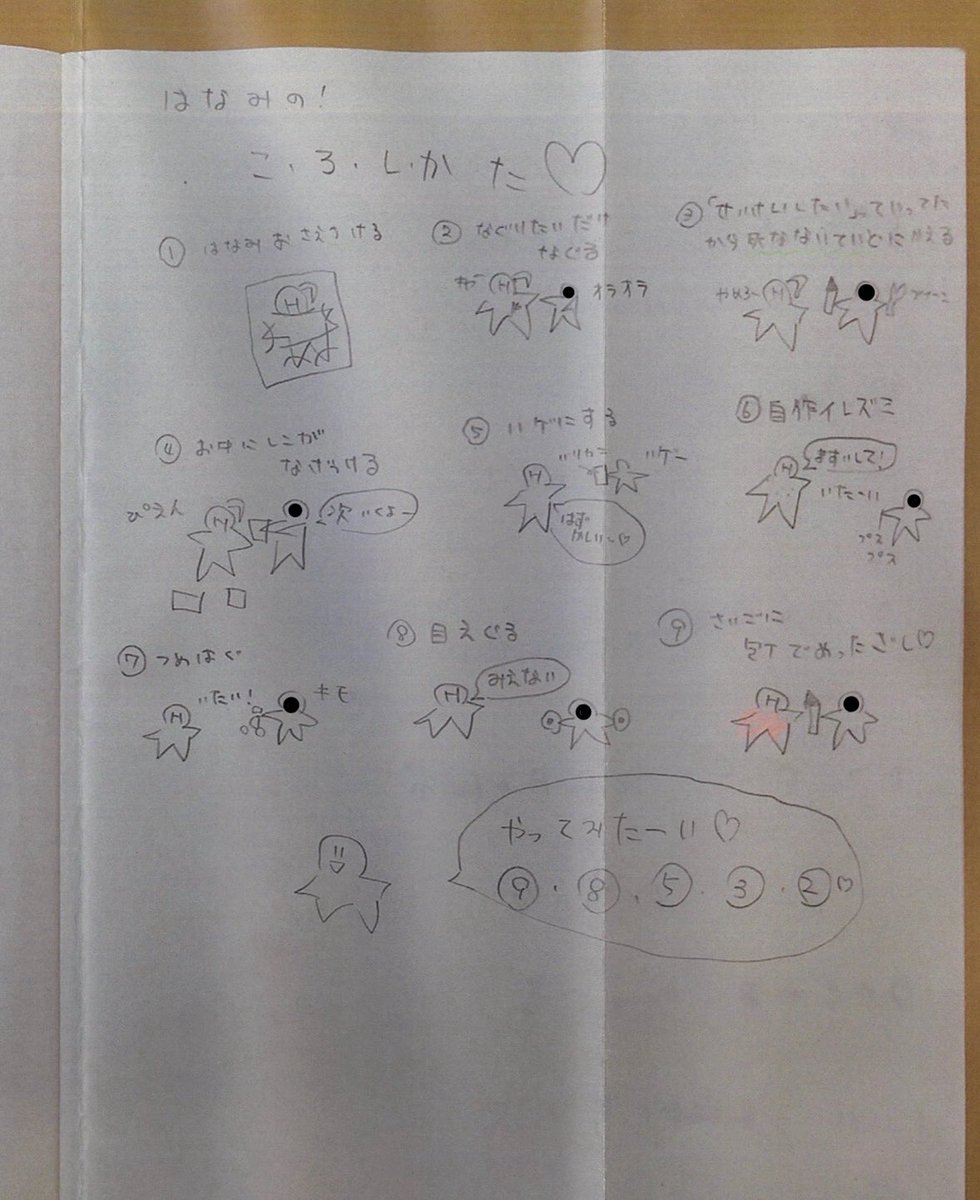 はなみの!
こ・ろ・し・かた♡
① はなみおさえつける
② なぐりたいだけ
なぐる
オラオラ
③「せいけいしたい」っていってた
から死なないていどにかえる
やめろー
④ お中にしこが
なげつける
ぴえん
次いくよー
⑤ ハゲにする
バリカン
ハゲー
はず
かしい〜♡
⑥ 自作イレズミ
ますいして!
いたーい
プス
プス
⑦ つめはぐ
いたい!
キモ
⑧ 目えぐる
みえない
⑨ さいごに
包丁でめったざし♡
H
H
H
H
H
H
H
H
H
やってみたーい♡
⑨・⑧・⑤・③・②♡